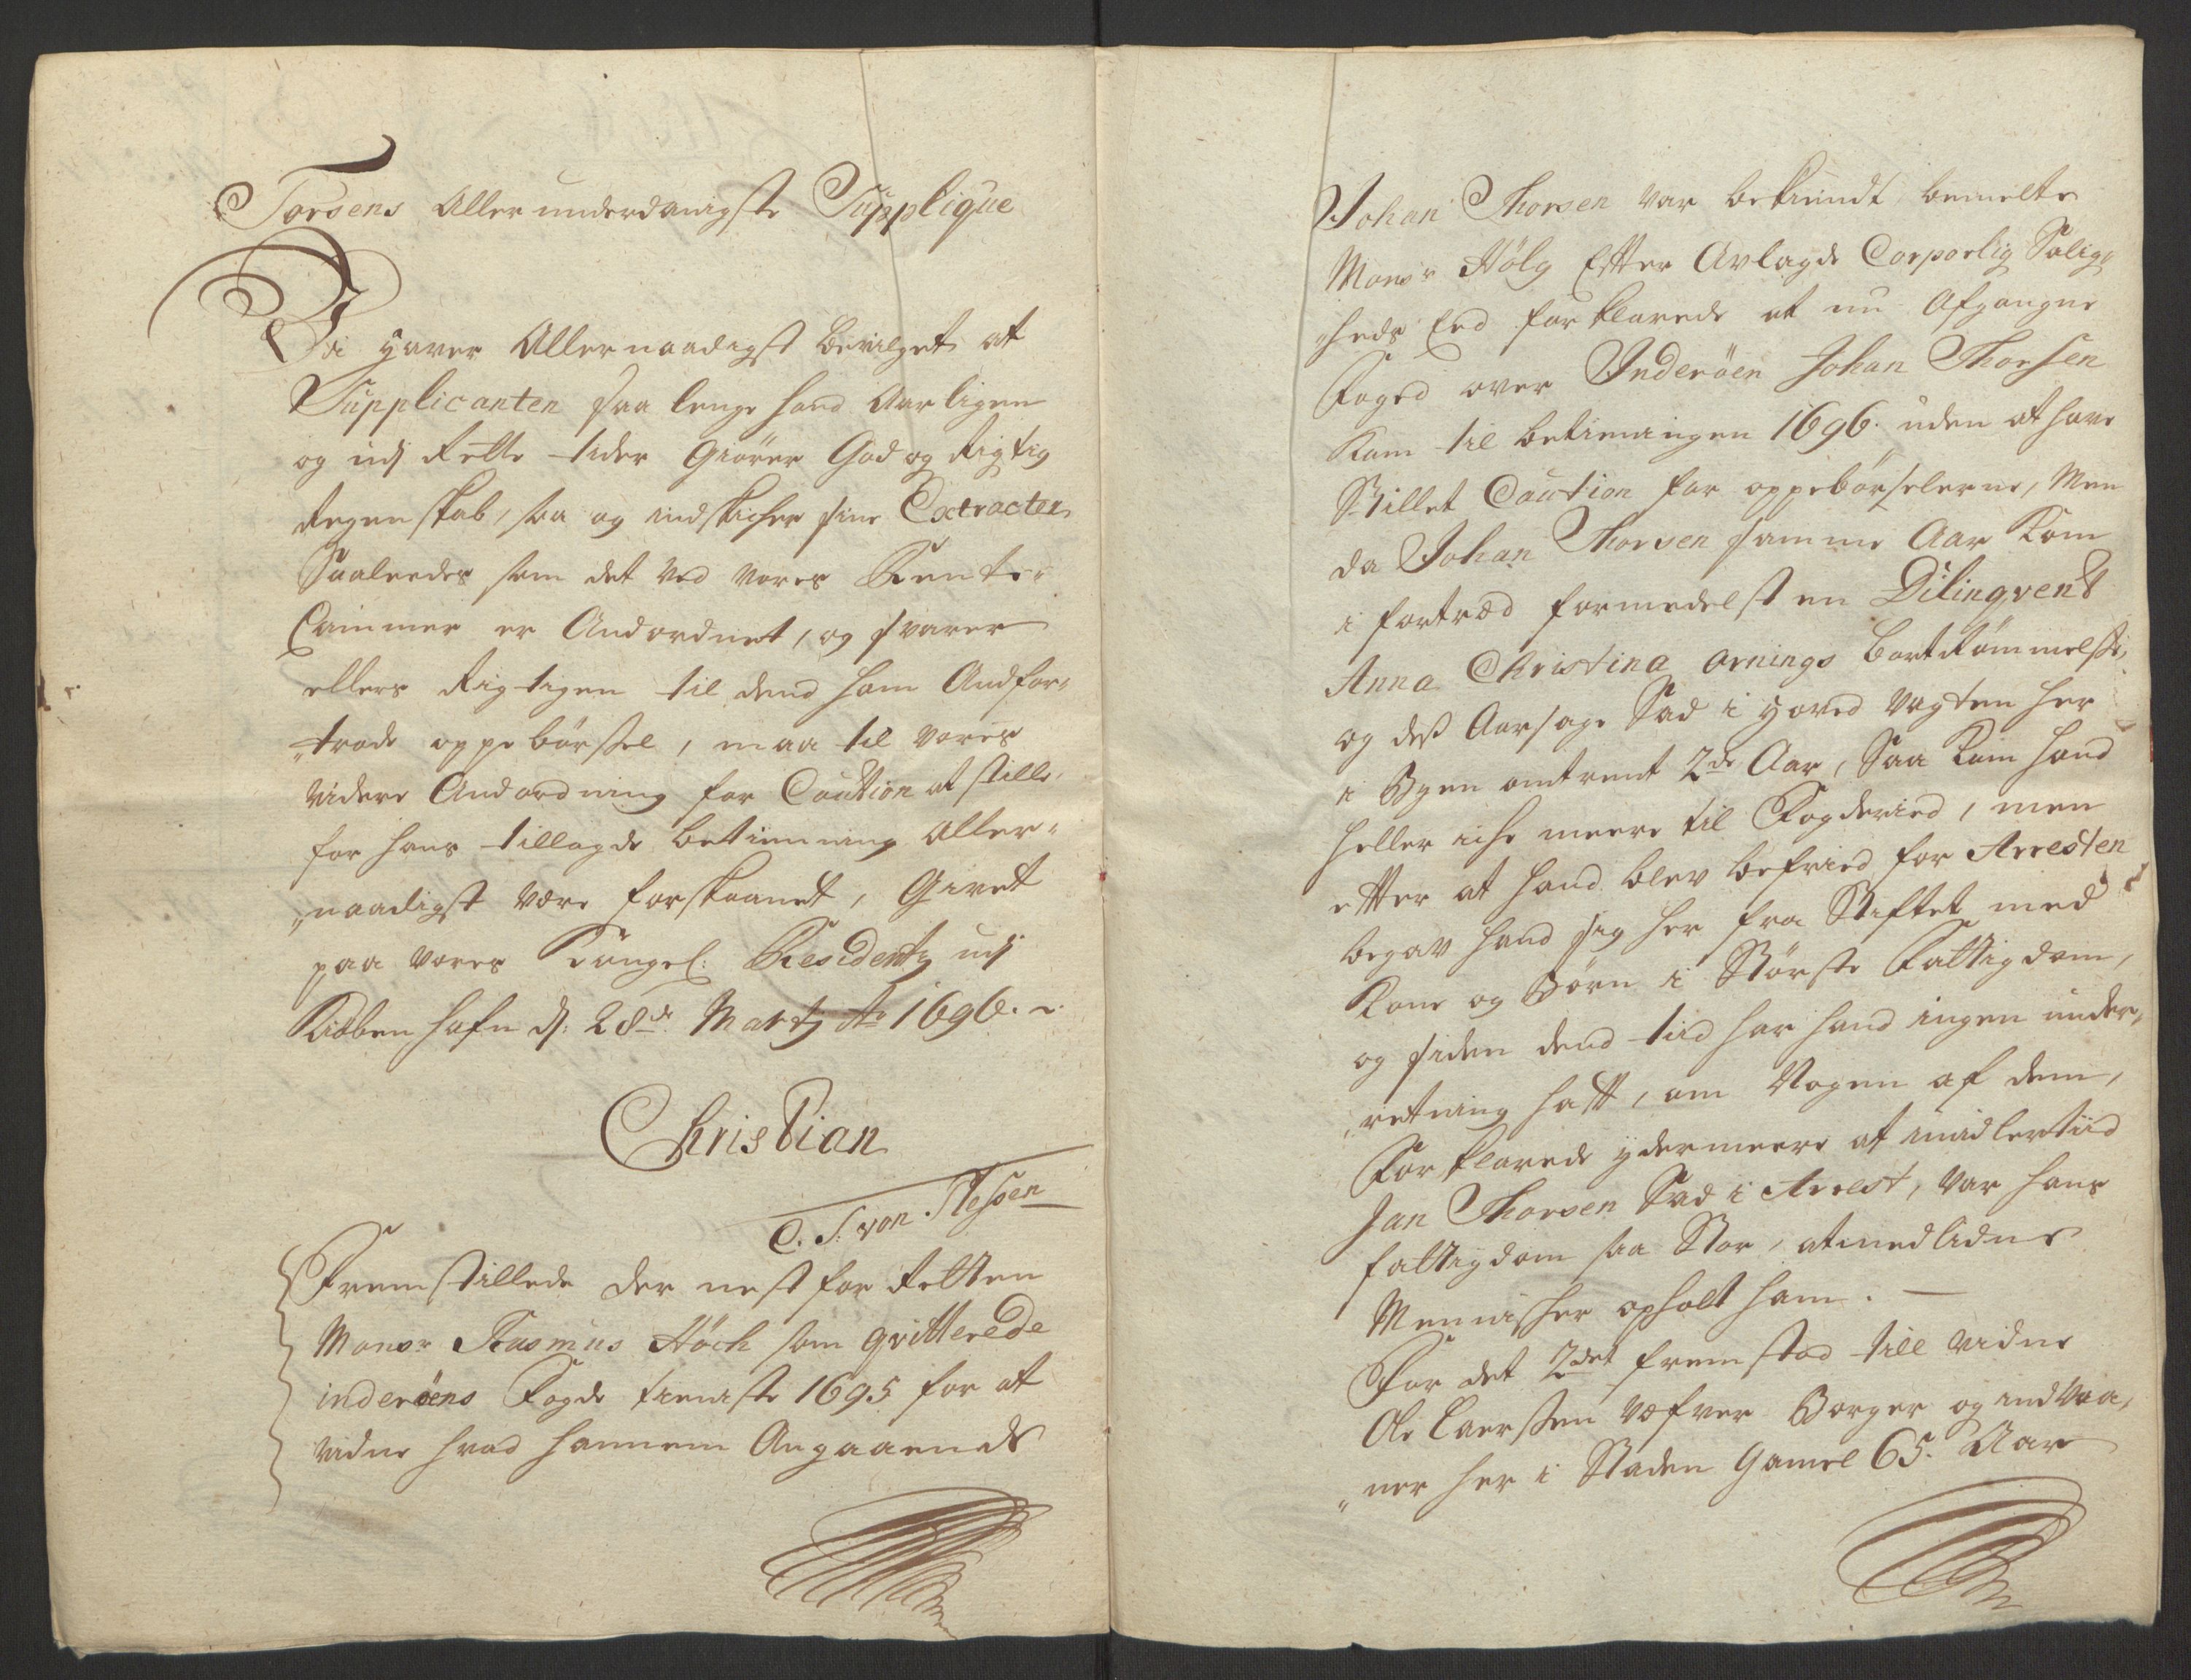 Torsens Allerunderdanigste Supplique
Vi haver Allernaadigst bevilget at
Supplicanten saa lenge hand Aarligen
og udj Rette tider Giörer God og Rigtig
Regenskab, saa og indskicher sine Extracter
Saaleedes som det ved vores Rente-
Cammer er Andordnet, og svarer
ellers Rigtigen til dend ham Andfor-
„trode oppebörssel, maa til vores
videre Andordning for Caution at stille,
for hans tillagde betienning Aller-
„naadigst være forskaanet, Givet
paa vores Kongel: Residentz udj
Kiöbenhafn d: 28de Martj Ao 1696.
Christian
C. S. von Plessen
Fremstillede der nest for Retten
Monsr Rasmus Höch som qvitterede
inderöens Fogde tieniste 1695 for at
vidne hvad hannem Angaaende
Johan Thorsen var bekiendt bemelte
Monsr Hölg Efter Avlagde Corporlig Salig-
„heds Eed forklarede at nu Afgangne
Foged over Inderöen Johan Thorsen
Kom til betieningen 1696. uden at have
Stillet Caution for oppebörselerne, Men
da Johan Thorsen samme Aar Kom
i fortræd formedelst en Dilinqvent
Anna Christina Ornings bortRömmelsse,
og dess Aarsage Sad i hoved vagten her
i Byen omtrent 2de Aar, Saa Kom hand
heller iche meere til Fogderied, men
efter at hand blev befried for Arresten
begav hand sig her fra Stiftet med
Kone og Börn i Störste Fattigdom,
og siden dend tiid har hand ingen under-
„retning haft, om Nogen af dem,
Forklarede ydermeere at imidlertiid
Jan Thorsen Sad i Arrest, var hans
fattigdom saa Stor, at medlidne
Mennisker opholt ham. —
For det 2det fremstod till vidne
Ole Laerssen Væfver Borger og indvaa-
„ner her i Staden Gamel 65. Aar